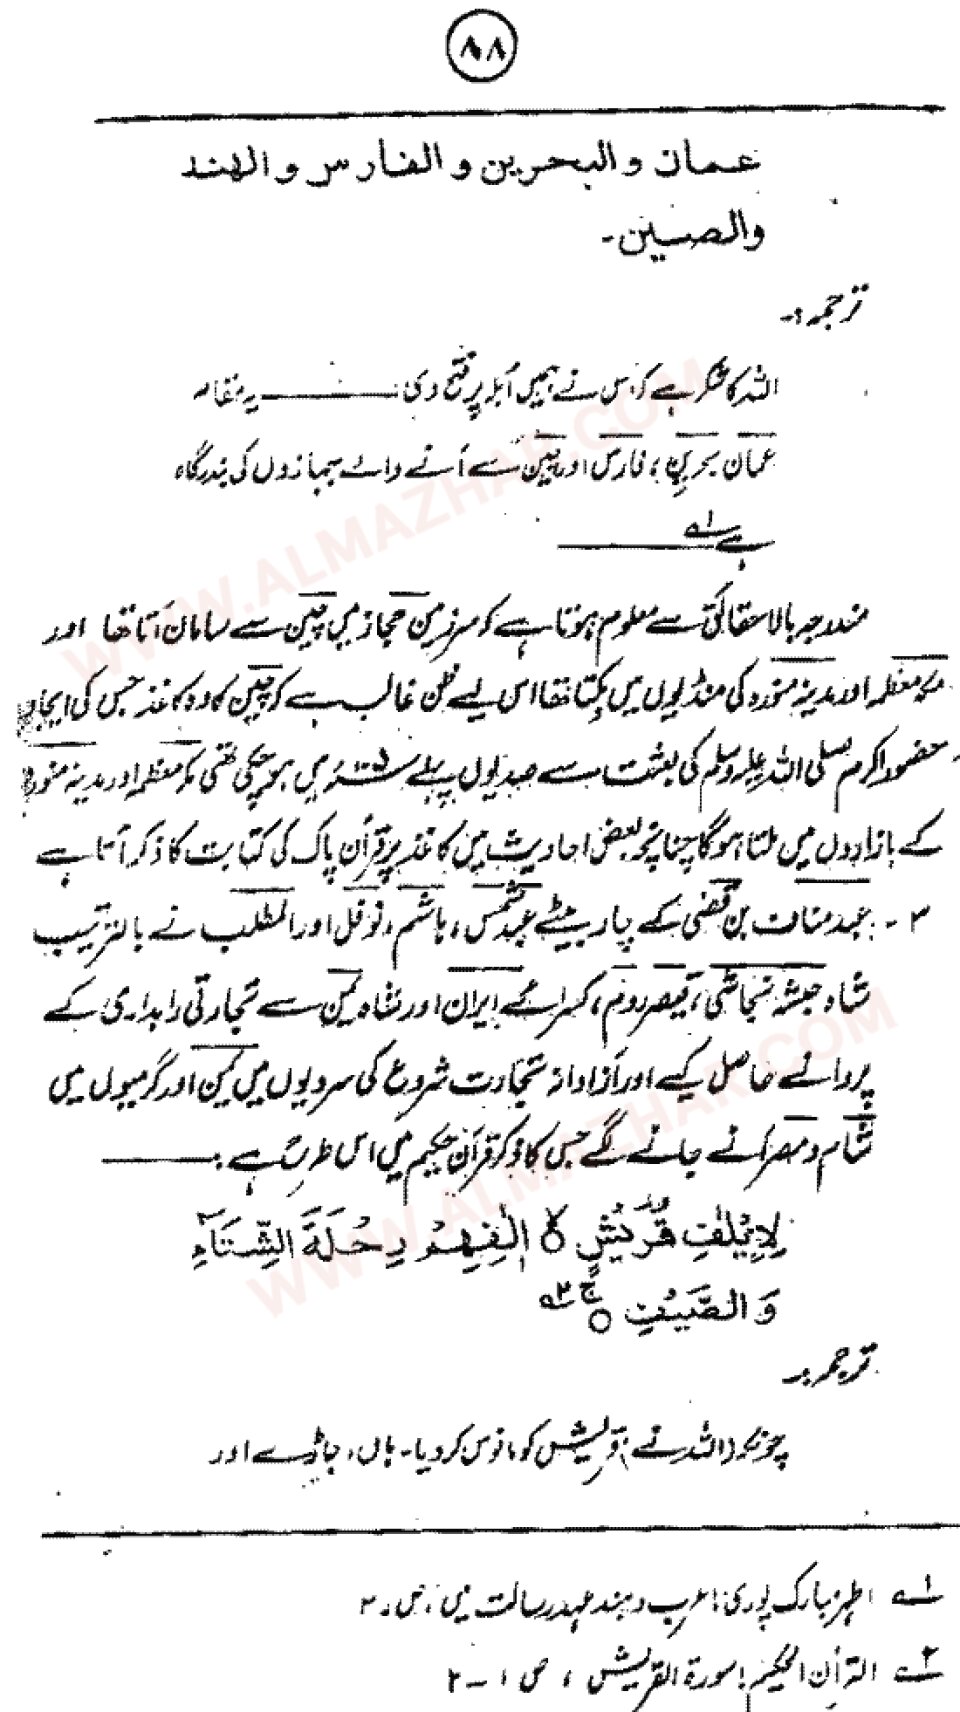 ۸۸
عمان والبحرين والفارس والهند
والصين۔
ترجمہ :۔
اللہ کا شکر ہے کہ اس نے ہمیں اُبلہ پر فتح دی: ——— یہ مقام
عمان بحرین، فارس اور چین سے آنے والے جہازوں کی بندرگاہ
ہے ۱؎ ———
مندرجہ بالا حقائق سے معلوم ہوتا ہے کہ سرزمین حجاز میں چین سے سامان آتا تھا اور
مکہ معظمہ اور مدینہ منورہ کی منڈیوں میں بکتا تھا اس لیے ظن غالب ہے کہ چین کا وہ کاغذ جس کی ایجاد
حضور اکرم صلی اللہ علیہ وسلم کی بعثت سے صدیوں پہلے میں ہو چکی تھی مکہ معظمہ اور مدینہ منورہ
کے بازاروں میں ملتا ہوگا چنانچہ بعض احادیث میں کاغذ پر قرآن پاک کی کتابت کا ذکر آتا ہے
۳ ۔ عبد مناف بن قصی کے چار بیٹے عبد شمس، ہاشم، نوفل اور المطلب نے بالترتیب
شاہ حبشہ نجاشی، قیصر روم، کسرائے ایران اور شاہ یمن سے تجارتی راہداری کے
پروانے حاصل کیے اور آزادانہ تجارت شروع کی سردیوں میں یمن اور گرمیوں میں
شام و مصر آنے جانے لگے جس کا ذکر قرآن حکیم میں اس طرح ہے : ———
لِاِيْلٰفِ قُرَيْشٍ ۙ اٖلٰفِهِمْ رِحْلَةَ الشِّتَآءِ
وَالصَّيْفِ ۚ ۲؎
ترجمہ :۔
چونکہ (اللہ نے) قریش کو مانوس کر دیا۔ ہاں، جاڑے اور
۱؎ اطہر مبارک پوری: عرب و ہند عہد رسالت میں، ص۔ ۲
۲؎ القرآن الحکیم: سورۃ القریش ، ص ۱ ۔ ۲
WWW.ALMAZHAR.COM
WWW.ALMAZHAR.COM